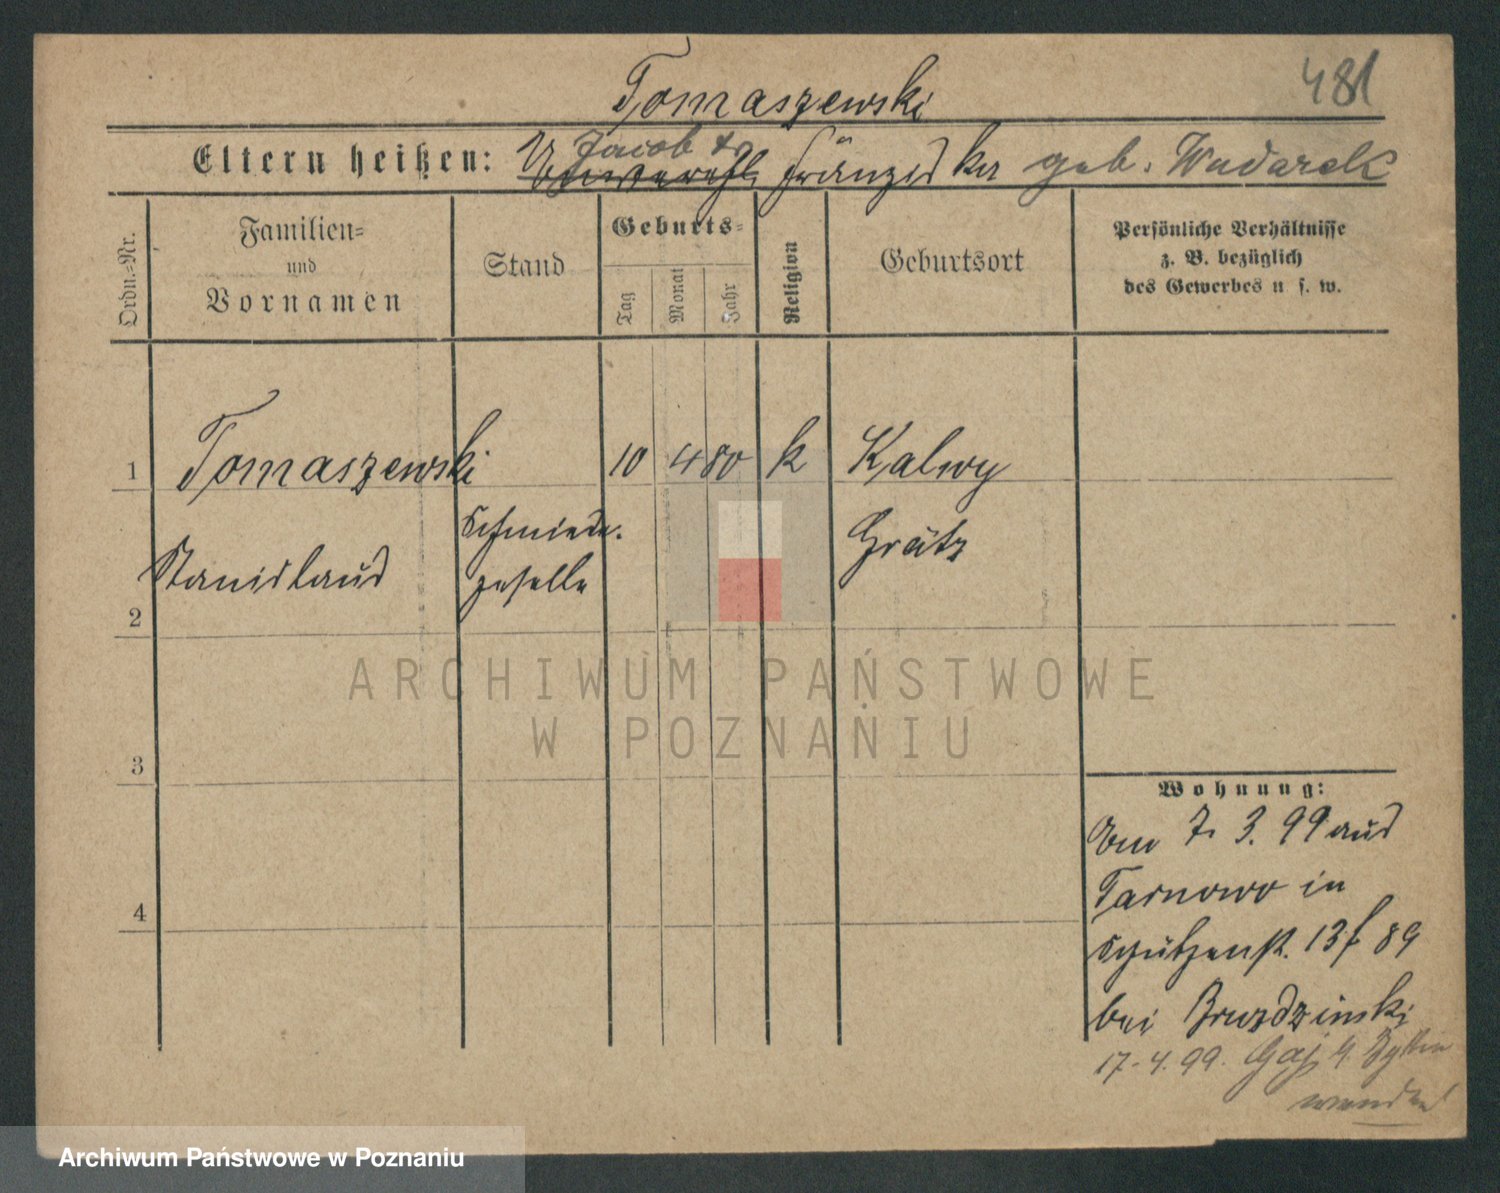 481
Tomaszewski
Eltern heißen: Jacob Franziska geb. Wudarek
Ordn.=Nr.
Familien=
und
Vornamen
Stand
Geburts=
Tag
Monat
Jahr
Religion
Geburtsort
Persönliche Verhältnisse
z. B. bezüglich
des Gewerbes u s. w.
1 Tomaszewski 10 4 80 k Kalwy
Schmiede-
Grätz
Stanislaus
geselle
2
ARCHIWUM PAŃSTWOWE
W POZNANIU
3
Wohnung:
7. 3. 99 aus
Tarnowo in
Schützenst. 13f 89
4
bei Bruzdzinski
17.4.99. Gaj
Archiwum Państwowe w Poznaniu